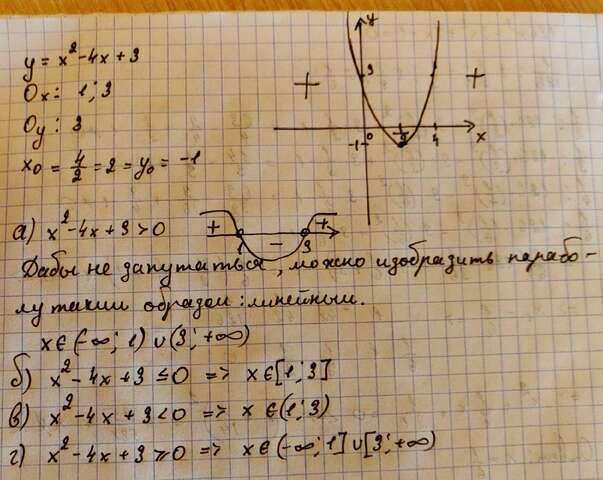 y = x² - 4x + 3
Ox: 1; 3
Oy: 3
x₀ = 4/2 = 2 = y₀ = -1
+ y 3 -1 0 2 4 x +
а) x² - 4x + 3 > 0
+ 1 - 3 +
Дабы не запутаться, можно изобразить парабо-
лу таким образом: линейным.
x ∈ (-∞; 1) ∪ (3; +∞)
б) x² - 4x + 3 ≤ 0 => x ∈ [1; 3]
в) x² - 4x + 3 < 0 => x ∈ (1; 3)
г) x² - 4x + 3 ≥ 0 => x ∈ (-∞; 1] ∪ [3; +∞)